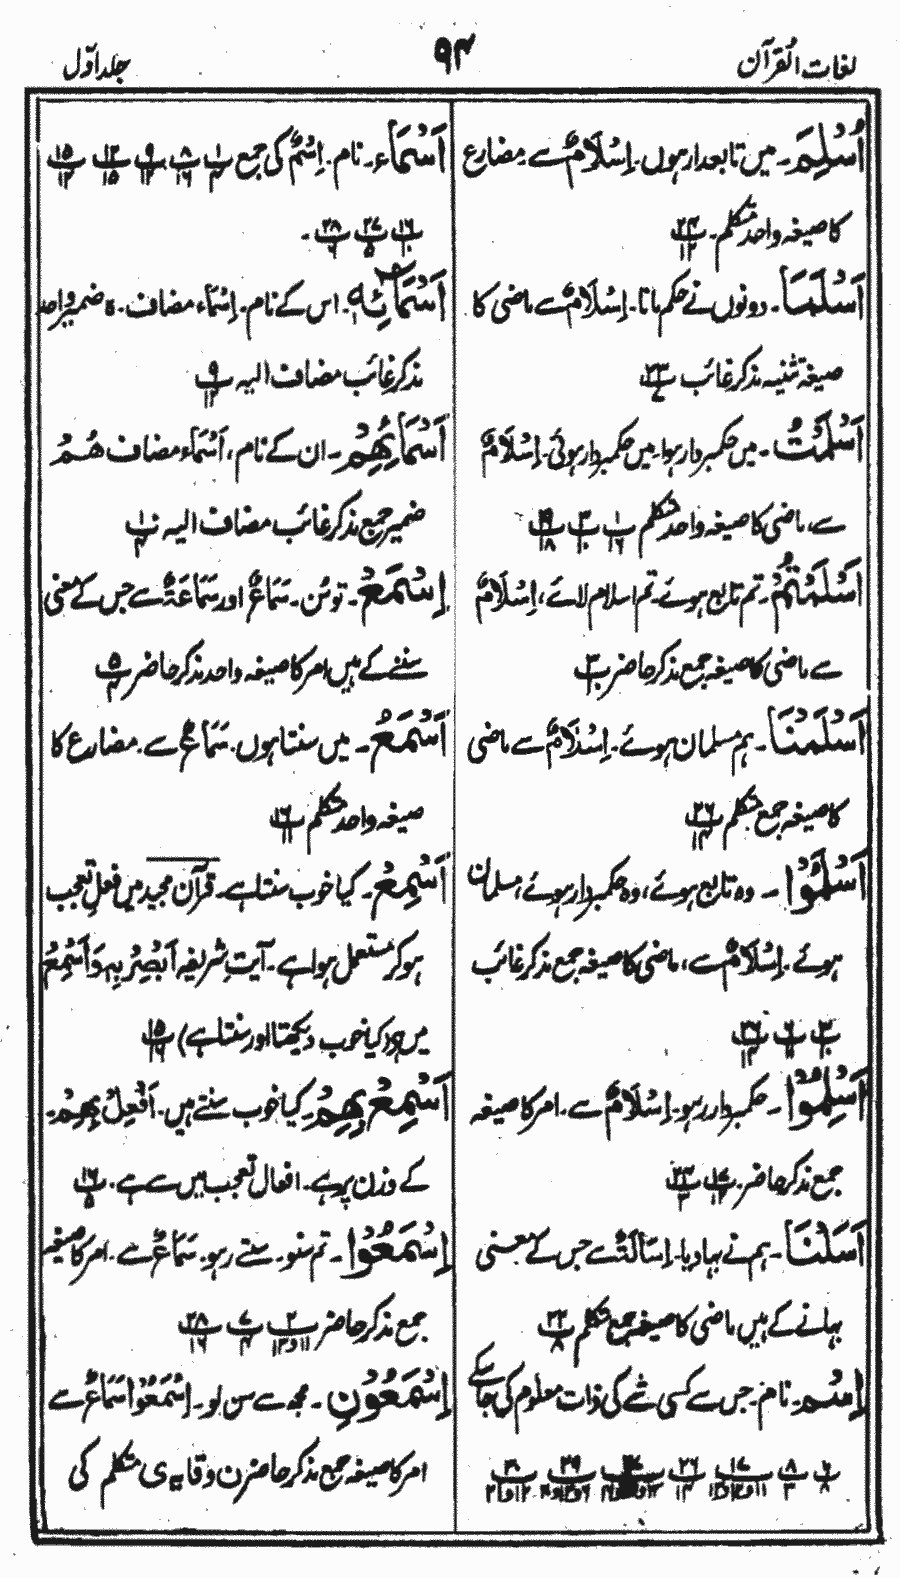 لغات القرآن
۹۴
جلد اوّل
اُسْلِمَ۔ میں تابعدار ہوں۔ اِسْلَامٌ سے مضارع
کا صیغہ واحد متکلم۔ ۲۴/۱۲
اَسْلَمَا۔ دونوں نے حکم مانا۔ اِسْلَامٌ سے ماضی کا
صیغہ تثنیہ مذکر غائب ۲۳/۷
اَسْلَمْتُ۔ میں حکمبردار ہوا۔ میں حکمبردار ہوئی۔ اِسْلَامٌ
سے، ماضی کا صیغہ واحد متکلم ۱/۱۶ ۳/۱۰ ۱۹/۱۸
اَسْلَمْتُمْ۔ تم تابع ہوئے۔ تم اسلام لائے، اِسْلَامٌ
سے ماضی کا صیغہ جمع مذکر حاضر ۳/۱۰
اَسْلَمْنَا۔ ہم مسلمان ہوئے۔ اِسْلَامٌ سے ماضی
کا صیغہ جمع متکلم ۲۶/۱۴
اَسْلَمُوْا۔ وہ تابع ہوئے، وہ حکمبردار ہوئے، مسلمان
ہوئے۔ اِسْلَامٌ سے، ماضی کا صیغہ جمع مذکر غائب
۳/۱۰ ۶/۱۱ ۲۶/۱۴
اَسْلِمُوْا۔ حکمبردار رہو۔ اِسْلَامٌ سے۔ امر کا صیغہ
جمع مذکر حاضر۔ ۱۷/۱۲ ۲۳/۳
اَسَلْنَا۔ ہم نے بہا دیا۔ اِسَالَةٌ سے جس کے معنی
بہانے کے ہیں ماضی کا صیغہ جمع متکلم ۲۲/۸
اِسْم۔ نام۔ جس سے کسی شے کی ذات معلوم کی جا سکے
۶/۸ ۸/۳ ۱۷/۱۱و۱۲و۱۵ ۲۶/۱۴
اَسْمَاء۔ نام۔ اِسْمٌ کی جمع ۱/۴ ۸/۱۶ ۹/۱۲ ۱۳/۱۵ ۱۵/۱۲
۱۶/۱۰ ۲۷/۵ ۲۸/۶۔
اَسْمَآئِہٖ۔ اس کے نام۔ اِسْمَاء مضاف۔ ہ ضمیر واحد
مذکر غائب مضاف الیہ ۹/۱۲
اَسْمَآئِهِمْ۔ ان کے نام، اَسْمَاء مضاف هُمْ
ضمیر جمع مذکر غائب مضاف الیہ ۱/۴
اِسْمَعْ۔ تو سُن۔ سَمَاعٌ اور سَمَاعَةٌ سے جس کے معنی
سننے کے ہیں امر کا صیغہ واحد مذکر حاضر ۵/۴
اَسْمَعُ۔ میں سنتا ہوں۔ سَمَاعٌ سے۔ مضارع کا
صیغہ واحد متکلم ۱۶/۱۱
اَسْمِعْ۔ کیا خوب سنتا ہے۔ قرآن مجید میں فعل تعجب
ہو کر مستعمل ہوا ہے۔ آیت شریفہ اَبْصِرْ بِہٖ وَاَسْمِعْ
میں (کیا خوب دیکھتا اور سنتا ہے) ۱۵/۱۶
اَسْمِعْ بِهِمْ۔ کیا خوب سنتے ہیں۔ اَفْعِلْ بِهِمْ۔
کے وزن پر ہے۔ افعال تعجب میں سے ہے۔ ۱۶/۵
اِسْمَعُوْا۔ تم سنو۔ سنتے رہو۔ سَمَاعٌ سے۔ امر کا صیغہ
جمع مذکر حاضر ۲/۱۱و۱۳ ۷/۴ ۲۸/۱۶
اِسْمَعُوْنِ۔ مجھ سے سن لو۔ اِسْمَعُوْا سَمَاعٌ سے
امر کا صیغہ جمع مذکر حاضر ن وقایہ ی متکلم کی